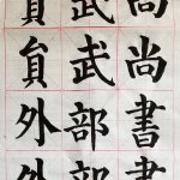 尚尚書書
武武部部
貟貟外外